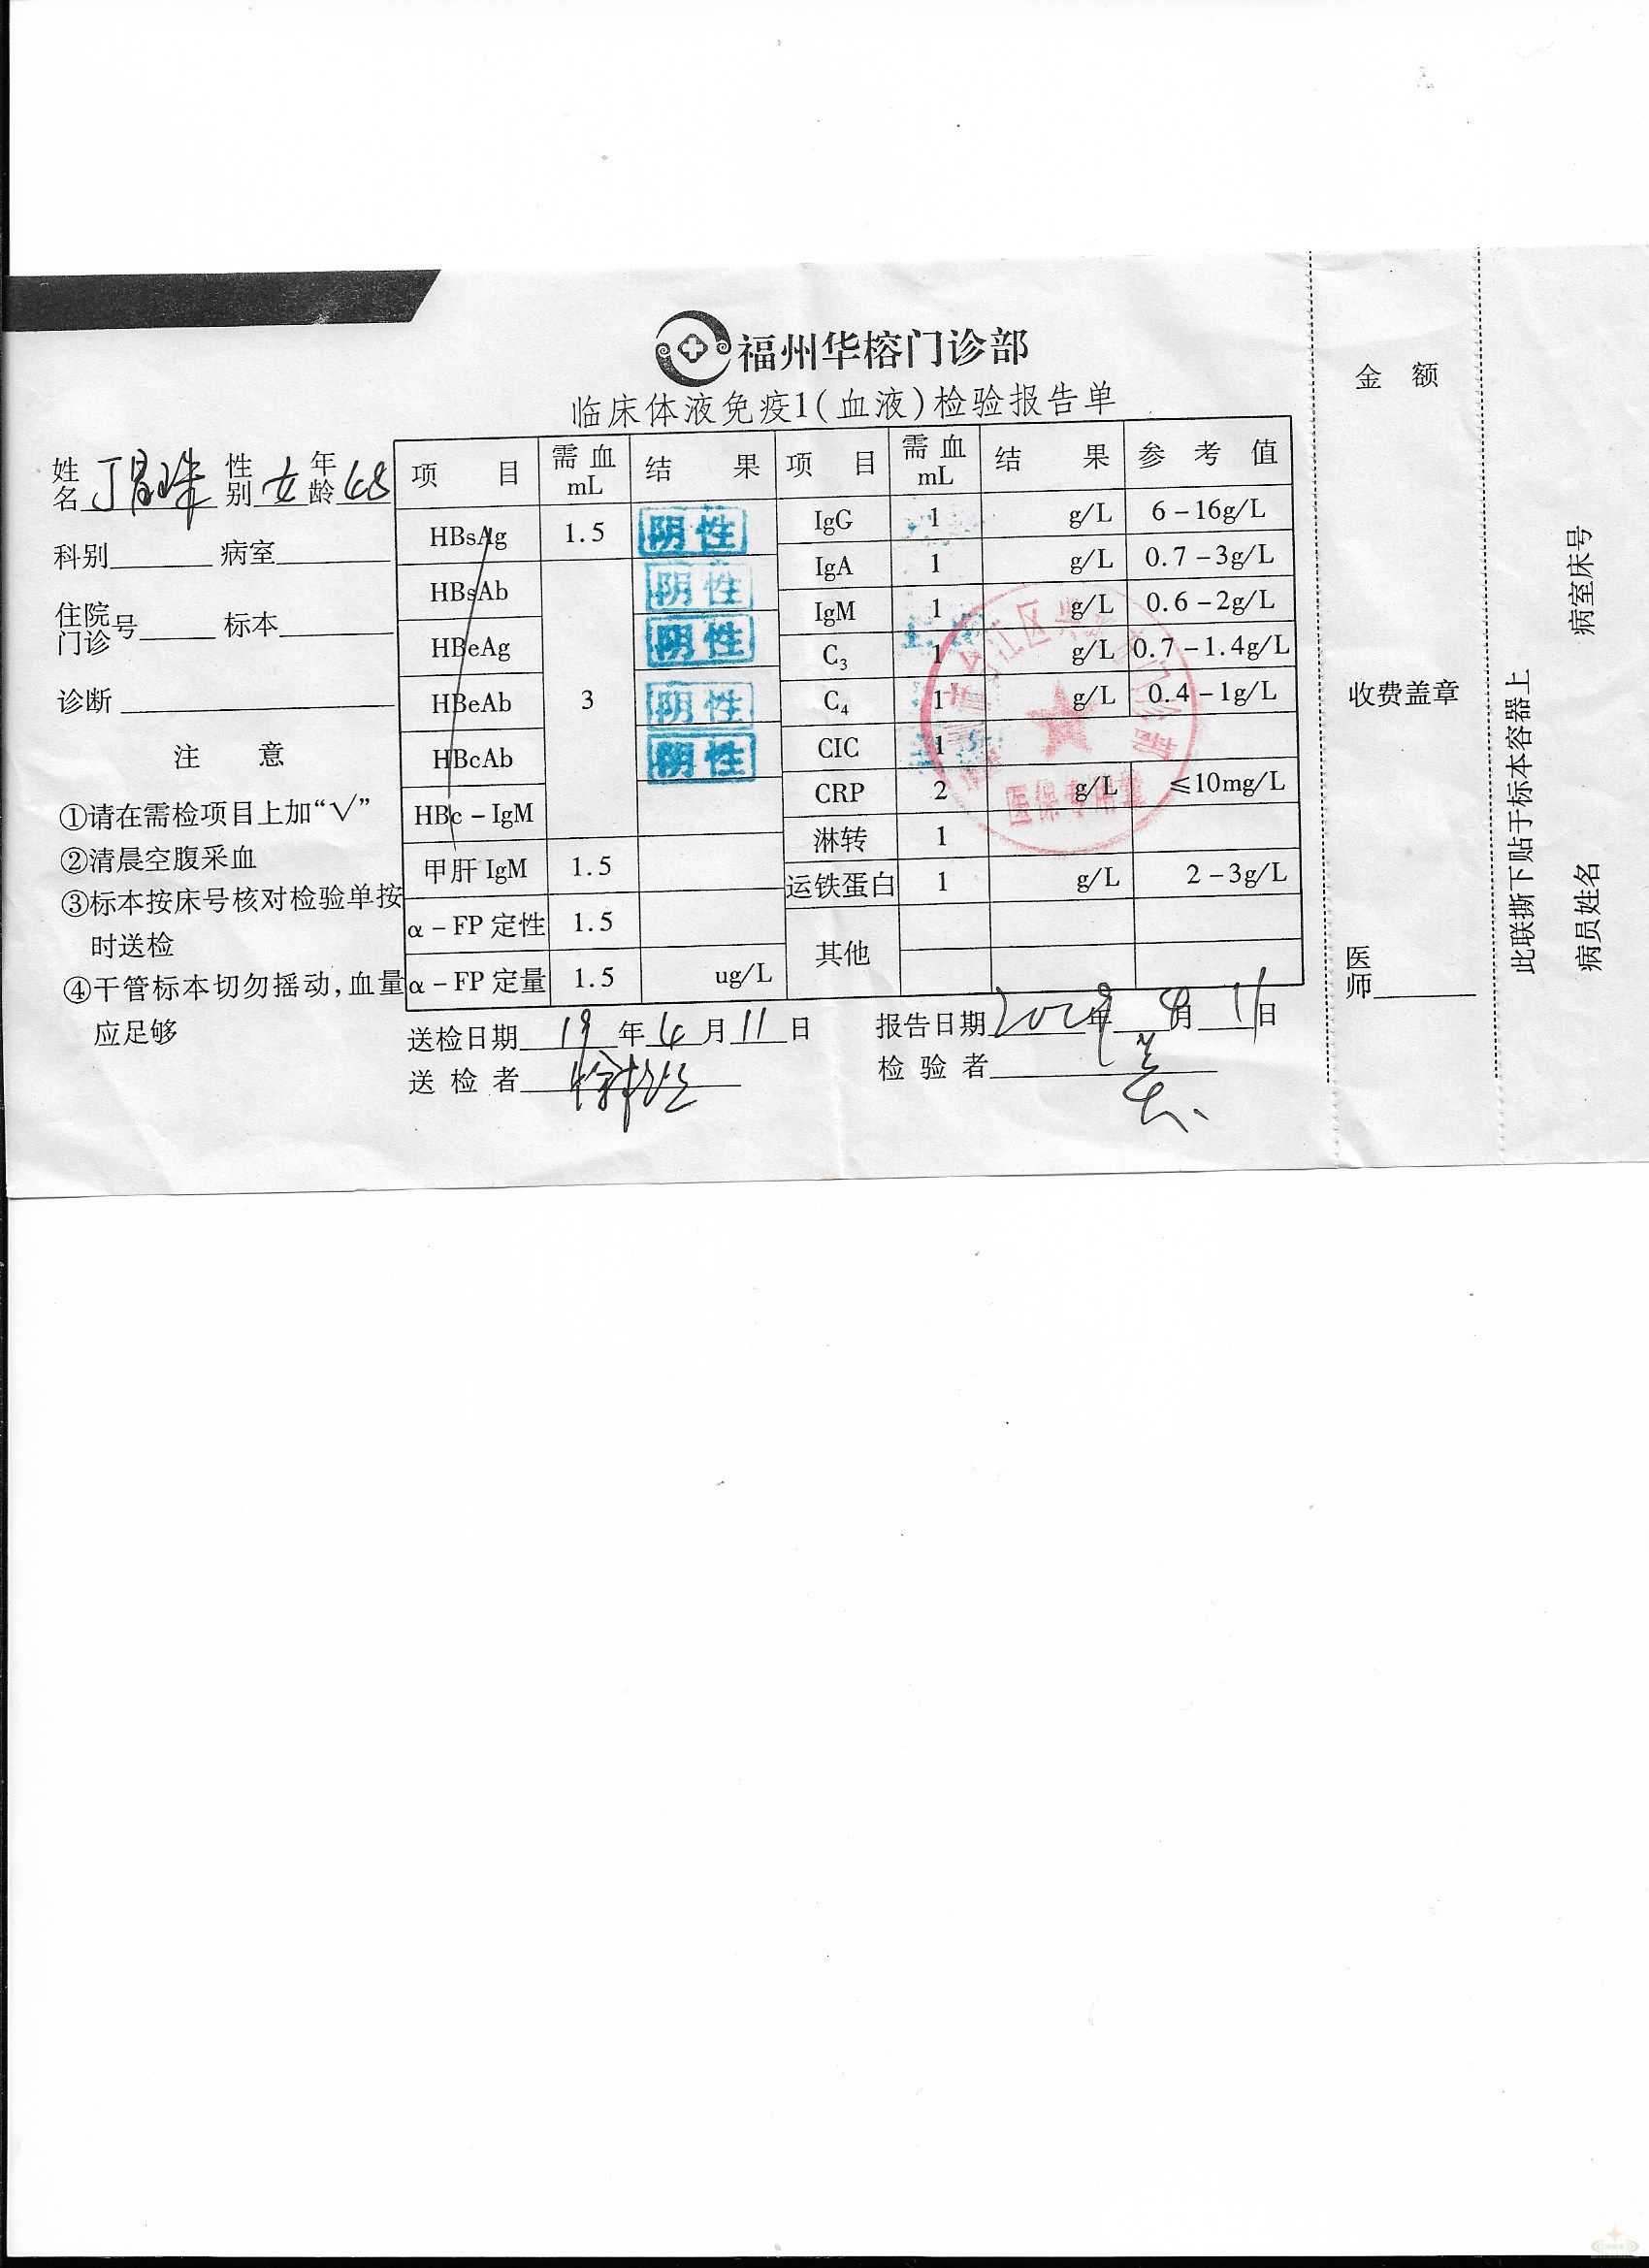 福州华榕门诊部
临床体液免疫1(血液)检验报告单
姓名 性别 女 年龄 48
科别 病室
住院门诊号 标本
诊断
注 意
①请在需检项目上加“√”
②清晨空腹采血
③标本按床号核对检验单按
时送检
④干管标本切勿摇动,血量
应足够
项 目 需血 mL 结 果 项 目 需血 mL 结 果 参 考 值
HBsAg 1.5 阴性 IgG 1 g/L 6-16g/L
HBsAb 阴性 IgA 1 g/L 0.7-3g/L
HBeAg 阴性 IgM 1 g/L 0.6-2g/L
C3 1 g/L 0.7-1.4g/L
HBeAb 3 阴性 C4 1 g/L 0.4-1g/L
HBcAb 阴性 CIC 1
HBc-IgM CRP 2 g/L ≤10mg/L
淋转 1
甲肝 IgM 1.5 运铁蛋白 1 g/L 2-3g/L
α-FP 定性 1.5 其他
α-FP 定量 1.5 ug/L
送检日期 19 年 4 月 11 日 报告日期 年 月 11 日
送 检 者 检 验 者
医保专用章
金 额
收费盖章
医师
此联撕下贴于标本容器上
病室床号
病员姓名